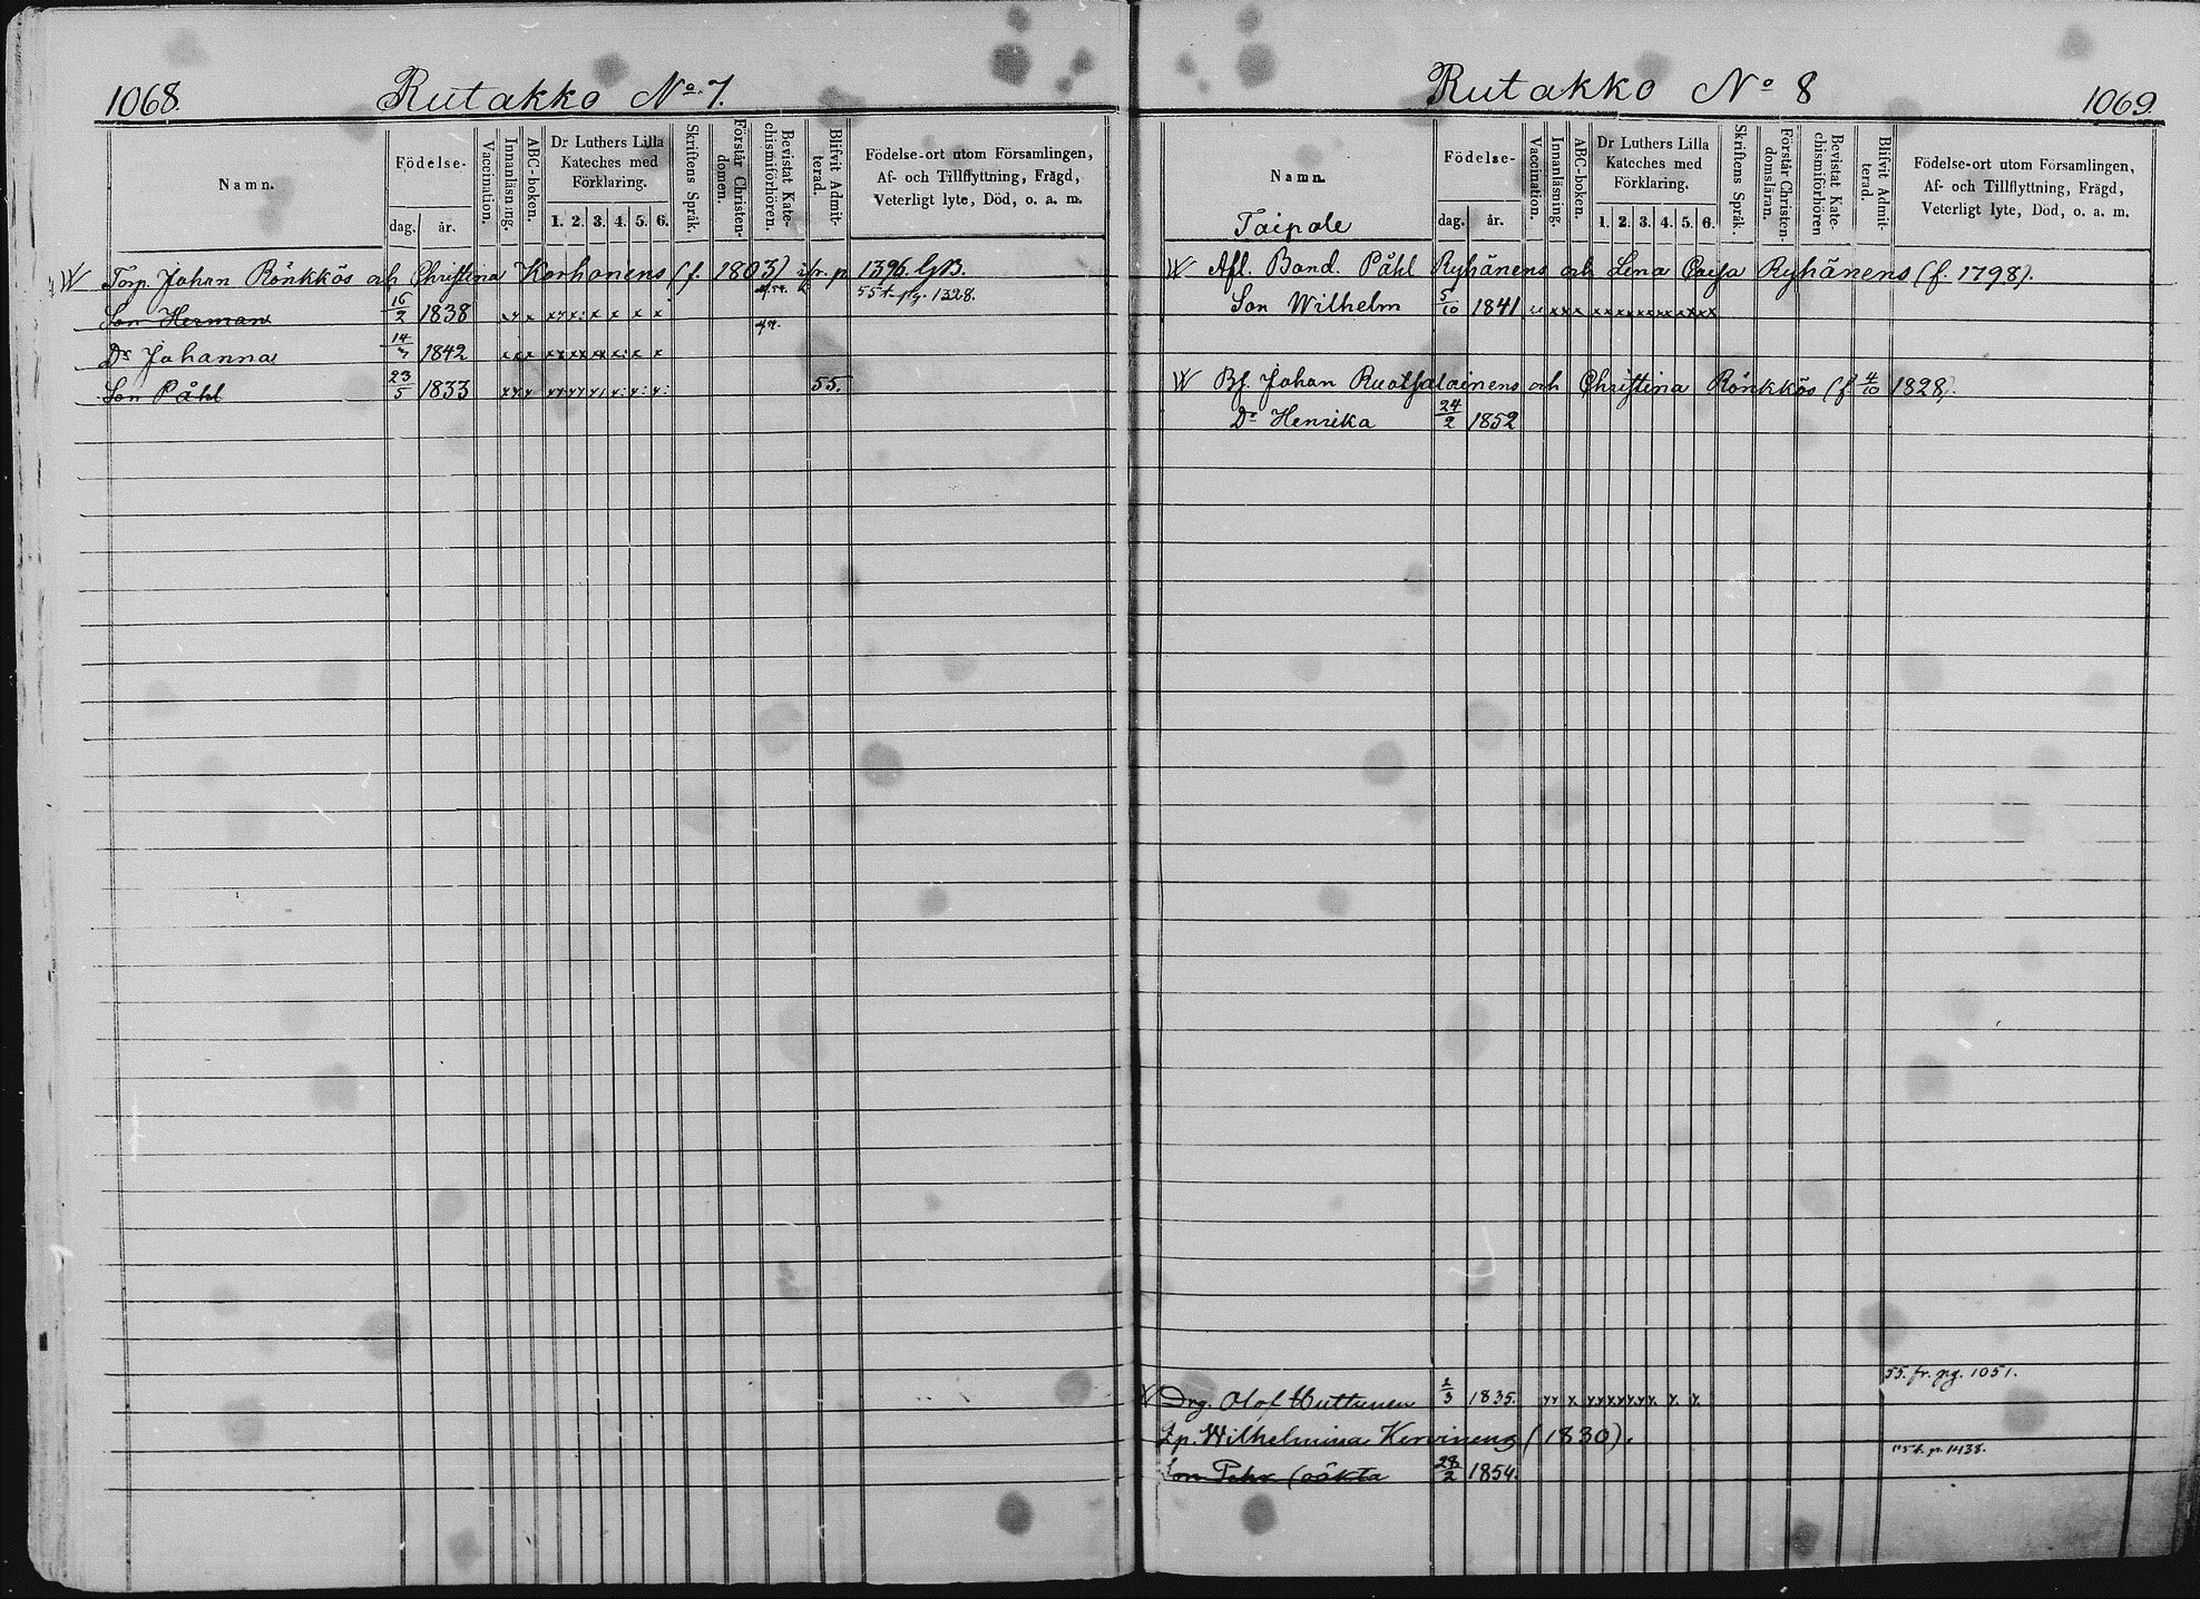 1068.
Rutakko No. 7.
Namn.
Födelse-
dag.
år.
Vaccination.
Innanläsning.
ABC-boken.
Dr Luthers Lilla
Kateches med
Förklaring.
1. 2. 3. 4. 5. 6.
Skriftens Språk.
Förstår Christen-
domen.
Bevistat Kate-
chismiförhören.
Blifvit Admit-
terad.
Födelse-ort utom Församlingen,
Af- och Tillflyttning, Frägd,
Veterligt lyte, Död, o. a. m.
W Torp. Johan Rönkkös och Christina Korhonens (f. 1803) ifr. p 1396. GB.
Son Herman 16/2 1838 x x x x x x x x x 55 t. pg. 1328.
Dr Johanna 14/7 1842
Son Påhl 23/5 1833 55.
Rutakko No 8
1069.
Namn.
Taipale
Födelse-
dag.
år.
Vaccination.
Innanläsning.
ABC-boken.
Dr Luthers Lilla
Kateches med
Förklaring.
1. 2. 3. 4. 5. 6.
Skriftens Språk.
Förstår Christen-
domsläran.
Bevistat Kate-
chismiförhören
Blifvit Admit-
terad.
Födelse-ort utom Församlingen,
Af- och Tillflyttning, Frägd,
Veterligt lyte, Död, o. a. m.
W Afl. Bond. Påhl Ryhänens och Lena Caisa Ryhänens (f. 1798).
Son Wilhelm 5/10 1841
W Bf. Johan Ruotsalainens och Christina Rönkkös (f. 4/10 1828).
Dr Henrika 24/2 1852
55. fr. pg. 1051.
Drg. Olof Huttunen 1/3 1835.
Wilhelmina Kervinens (1830).
Son (oäkta 28/2 1854.